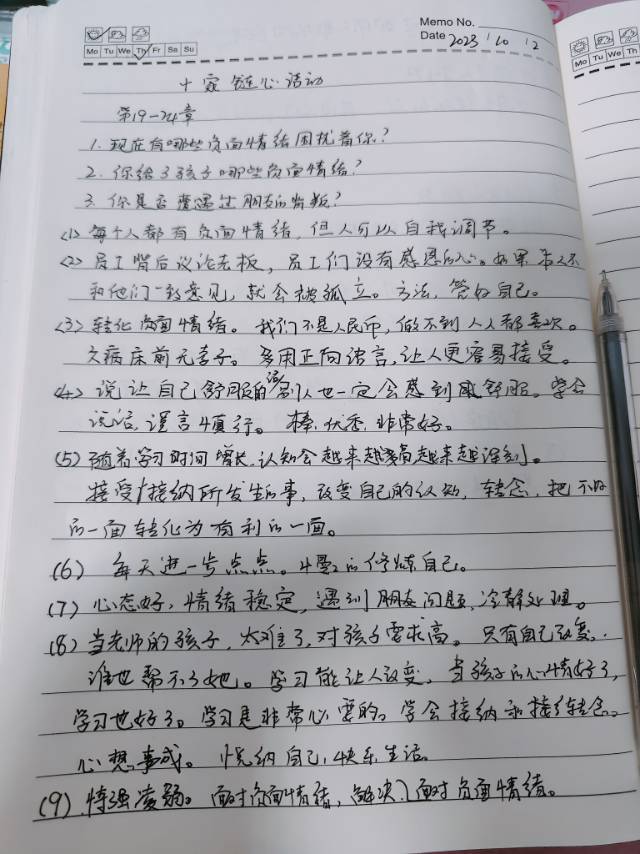 Memo No.
Mo Tu We Th Fr Sa Su
Date 2023/10/2
Mo Tu We Th
十家链心活动
第19-24章
1. 现在有哪些负面情绪困扰着你?
2. 你给了孩子哪些负面情绪?
3. 你是否遭遇过朋友的背叛?
<1> 每个人都有负面情绪,但人可以自我调节。
<2> 员工背后议论老板,员工们没有感恩的心。如果本人不
和他们一致意见,就会被孤立。方法,管好自己。
<3> 转化负面情绪。我们不是人民币,做不到人人都喜欢。
久病床前无孝子。多用正向语言,让人更容易接受。
<4> 说让自己舒服的话别人也一定会感到很舒服。学会
说话,谨言慎行。棒,优秀,非常好。
(5) 随着学习时间增长,认知会越来越高越来越深刻。
接受/接纳所发生的事,改变自己的认知,转念,把不好
的一面转化为有利的一面。
(6) 每天进一步点点。慢慢的修炼自己。
(7) 心态好,情绪稳定,遇到朋友问题,冷静处理。
(8) 当老师的孩子,太难了,对孩子要求高。只有自己改变,
谁也帮不了她。学习能让人改变,当孩子的心情好了,
学习也好了。学习是非常必要的。学会接纳和转念。
心想事成。悦纳自己,快乐生活。
(9) 恃强凌弱。面对负面情绪,解决面对负面情绪。